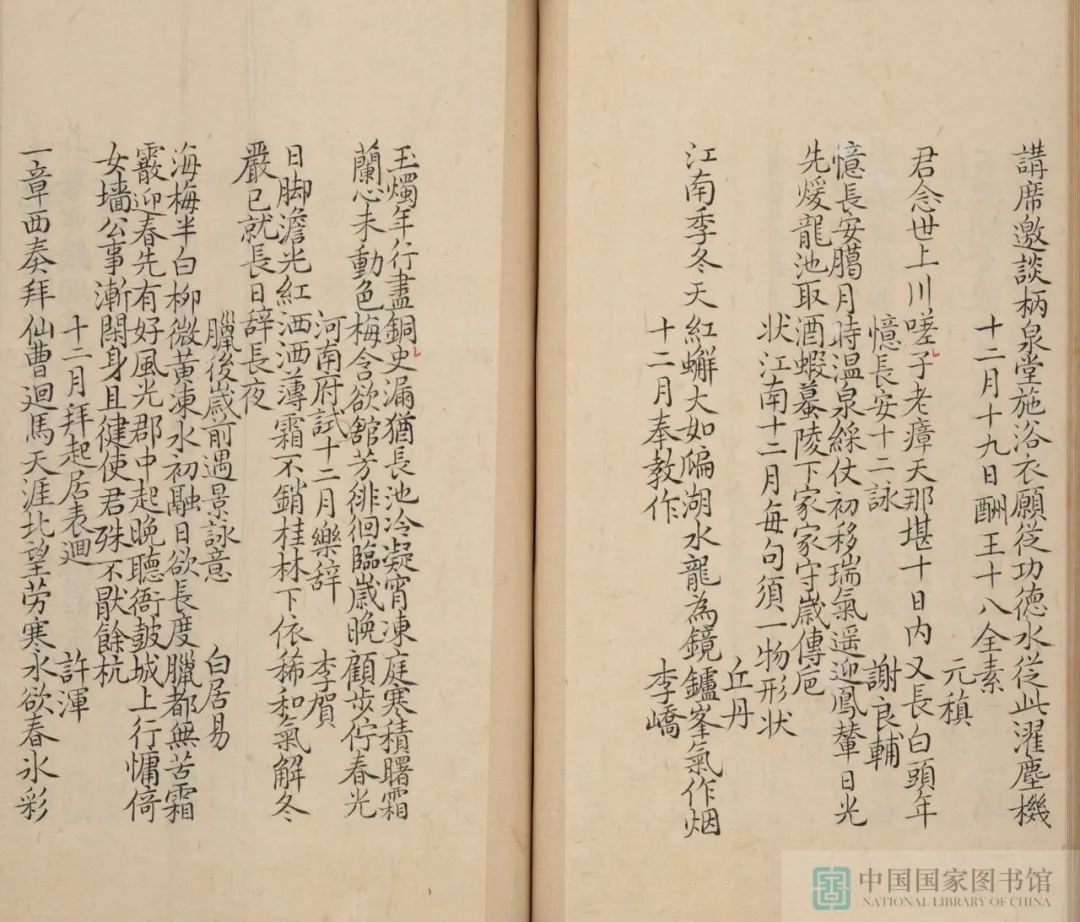 講席邀談柄泉堂施浴衣願從功德水從此濯塵機
十二月十九日酬王十八全素
元稹
君念世上川嗟予老瘴天那堪十日內又長白頭年
憶長安十二詠
謝良輔
憶長安臈月時温泉綵仗初移瑞氣遥迎鳳輦日光
先煖龍池取酒蝦蟇陵下家家守歲傳巵
状江南十二月每句須一物形状
丘丹
江南季冬天紅蠏大如䱟湖水龍為鏡鑪峯氣作烟
十二月奉教作
李嶠
玉燭年行盡銅史漏猶長池冷凝宵凍庭寒積曙霜
蘭心未動色梅含欲舘芳徘徊臨歲晚顧步佇春光
河南府試十二月樂辞
李賀
日脚澹光紅洒洒薄霜不銷桂林下依稀和氣解冬
嚴已就長日辞長夜
臘後歲前遇景詠意
白居易
海梅半白柳微黄凍水初融日欲長度臘都無苦霜
霰迎春先有好風光郡中起晚聽衙鼓城上行慵倚
女墙公事漸閑身且健使君殊不猒餘杭
十二月拜起居表迴
許渾
一章西奏拜仙曹迴馬天涯北望勞寒永欲春氷彩
中国国家图书馆
NATIONAL LIBRARY OF CHINA